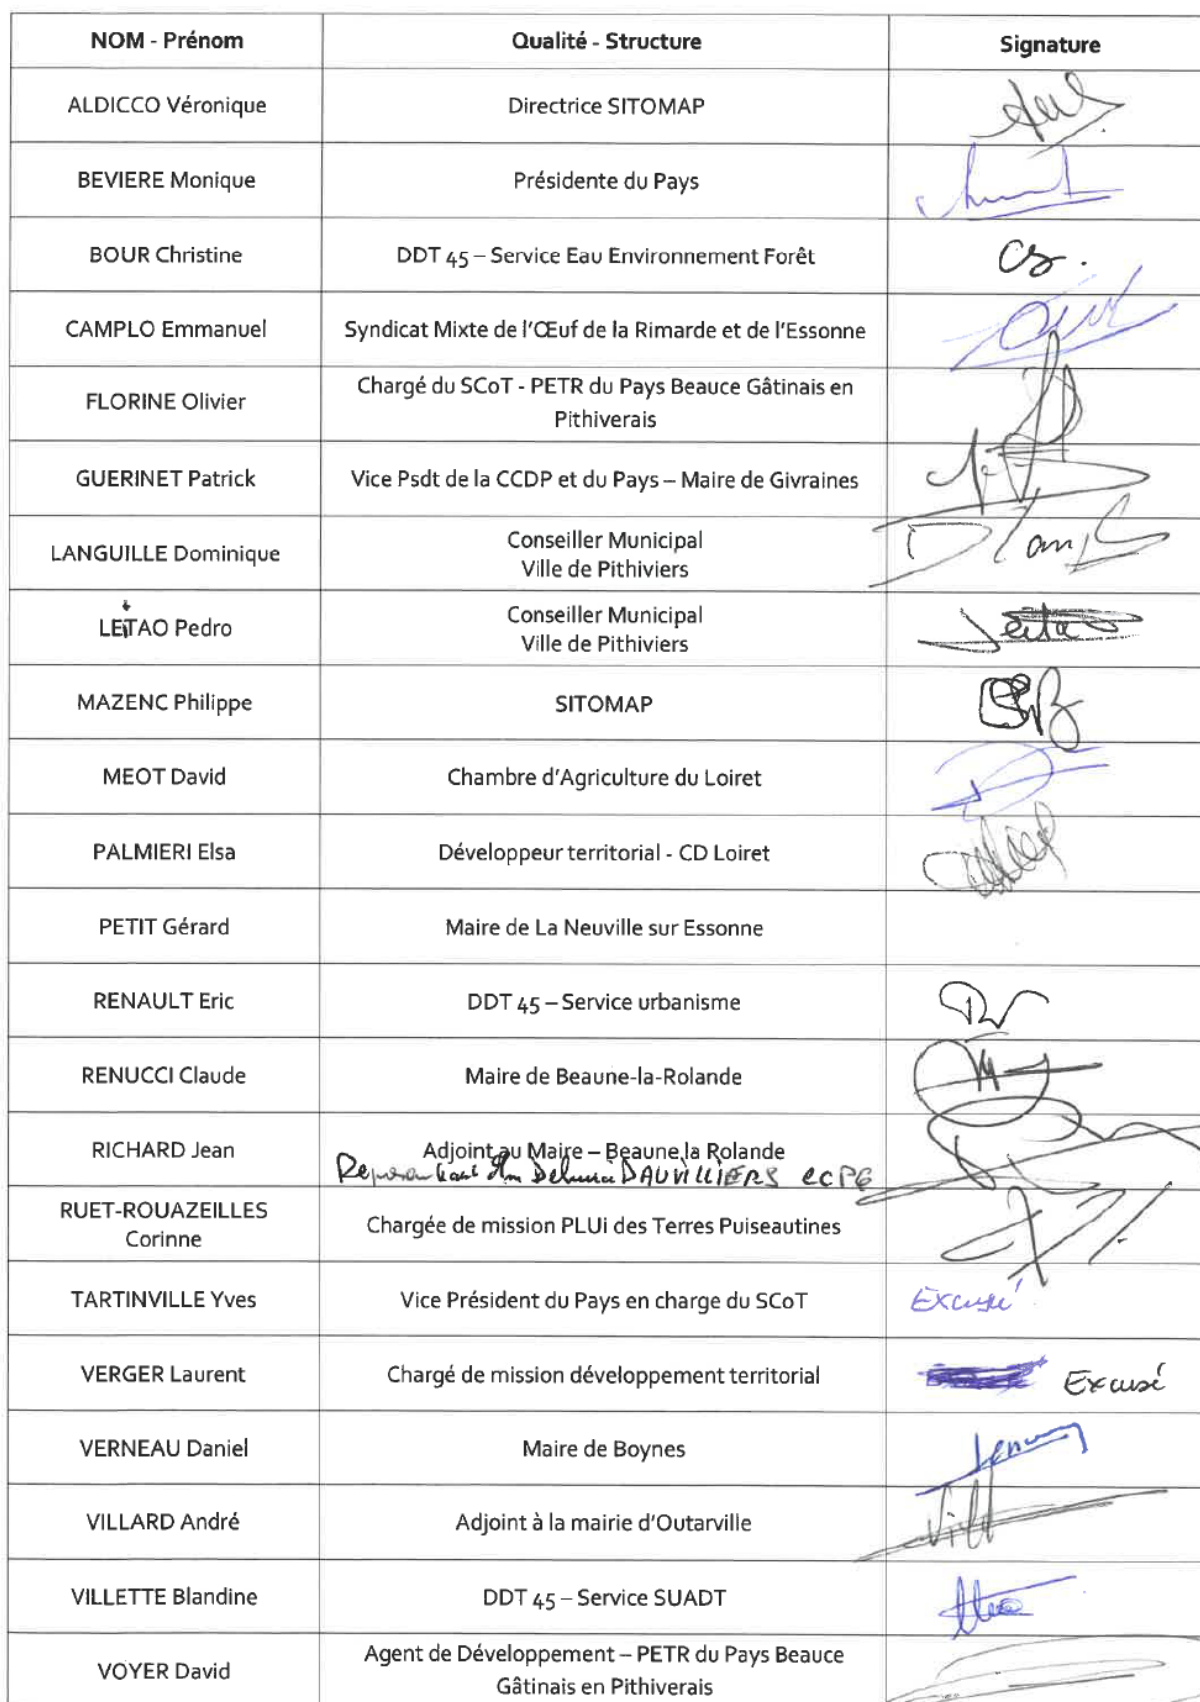 NOM - Prénom Qualité - Structure Signature
ALDICCO Véronique Directrice SITOMAP
BEVIERE Monique Présidente du Pays
BOUR Christine DDT 45 – Service Eau Environnement Forêt
CAMPLO Emmanuel Syndicat Mixte de l'Œuf de la Rimarde et de l'Essonne
FLORINE Olivier Chargé du SCoT - PETR du Pays Beauce Gâtinais en
Pithiverais
GUERINET Patrick Vice Psdt de la CCDP et du Pays – Maire de Givraines
LANGUILLE Dominique Conseiller Municipal
Ville de Pithiviers
LEITAO Pedro Conseiller Municipal
Ville de Pithiviers
MAZENC Philippe SITOMAP
MEOT David Chambre d'Agriculture du Loiret
PALMIERI Elsa Développeur territorial - CD Loiret
PETIT Gérard Maire de La Neuville sur Essonne
RENAULT Eric DDT 45 – Service urbanisme
RENUCCI Claude Maire de Beaune-la-Rolande
RICHARD Jean Adjoint au Maire – Beaune la Rolande
DAUVILLIERS
RUET-ROUAZEILLES
Corinne Chargée de mission PLUi des Terres Puiseautines
TARTINVILLE Yves Vice Président du Pays en charge du SCoT Excusé
VERGER Laurent Chargé de mission développement territorial Excusé
VERNEAU Daniel Maire de Boynes
VILLARD André Adjoint à la mairie d'Outarville
VILLETTE Blandine DDT 45 – Service SUADT
VOYER David Agent de Développement – PETR du Pays Beauce
Gâtinais en Pithiverais